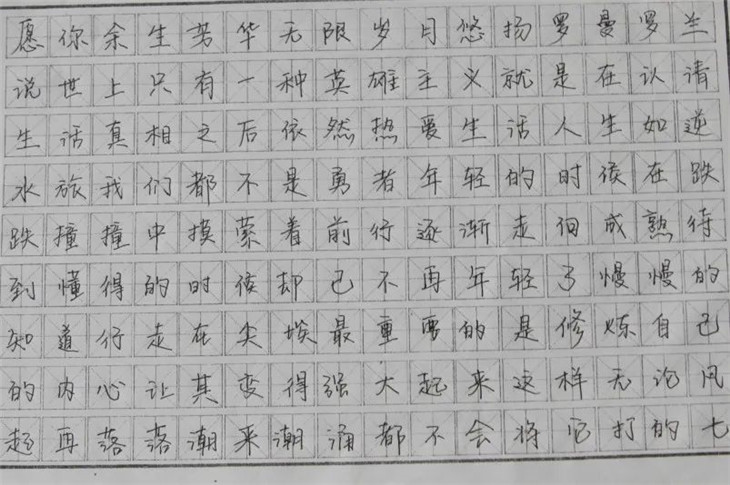 愿你余生芳华无限岁月悠扬罗曼罗兰
说世上只有一种英雄主义就是在认请
生话真相之后依然热爱生活人生如逆
水旅我们都不是勇者年轻的时候在跌
跌撞撞中摸萦着前行逐渐走徊成熟待
到懂得的时侯却己不再年轻了慢慢的
知道行走在尖埃最重要的是修炼自己
的内心让其变得强大起来这样无论风
起再落落潮来潮涌都不会将它打的七